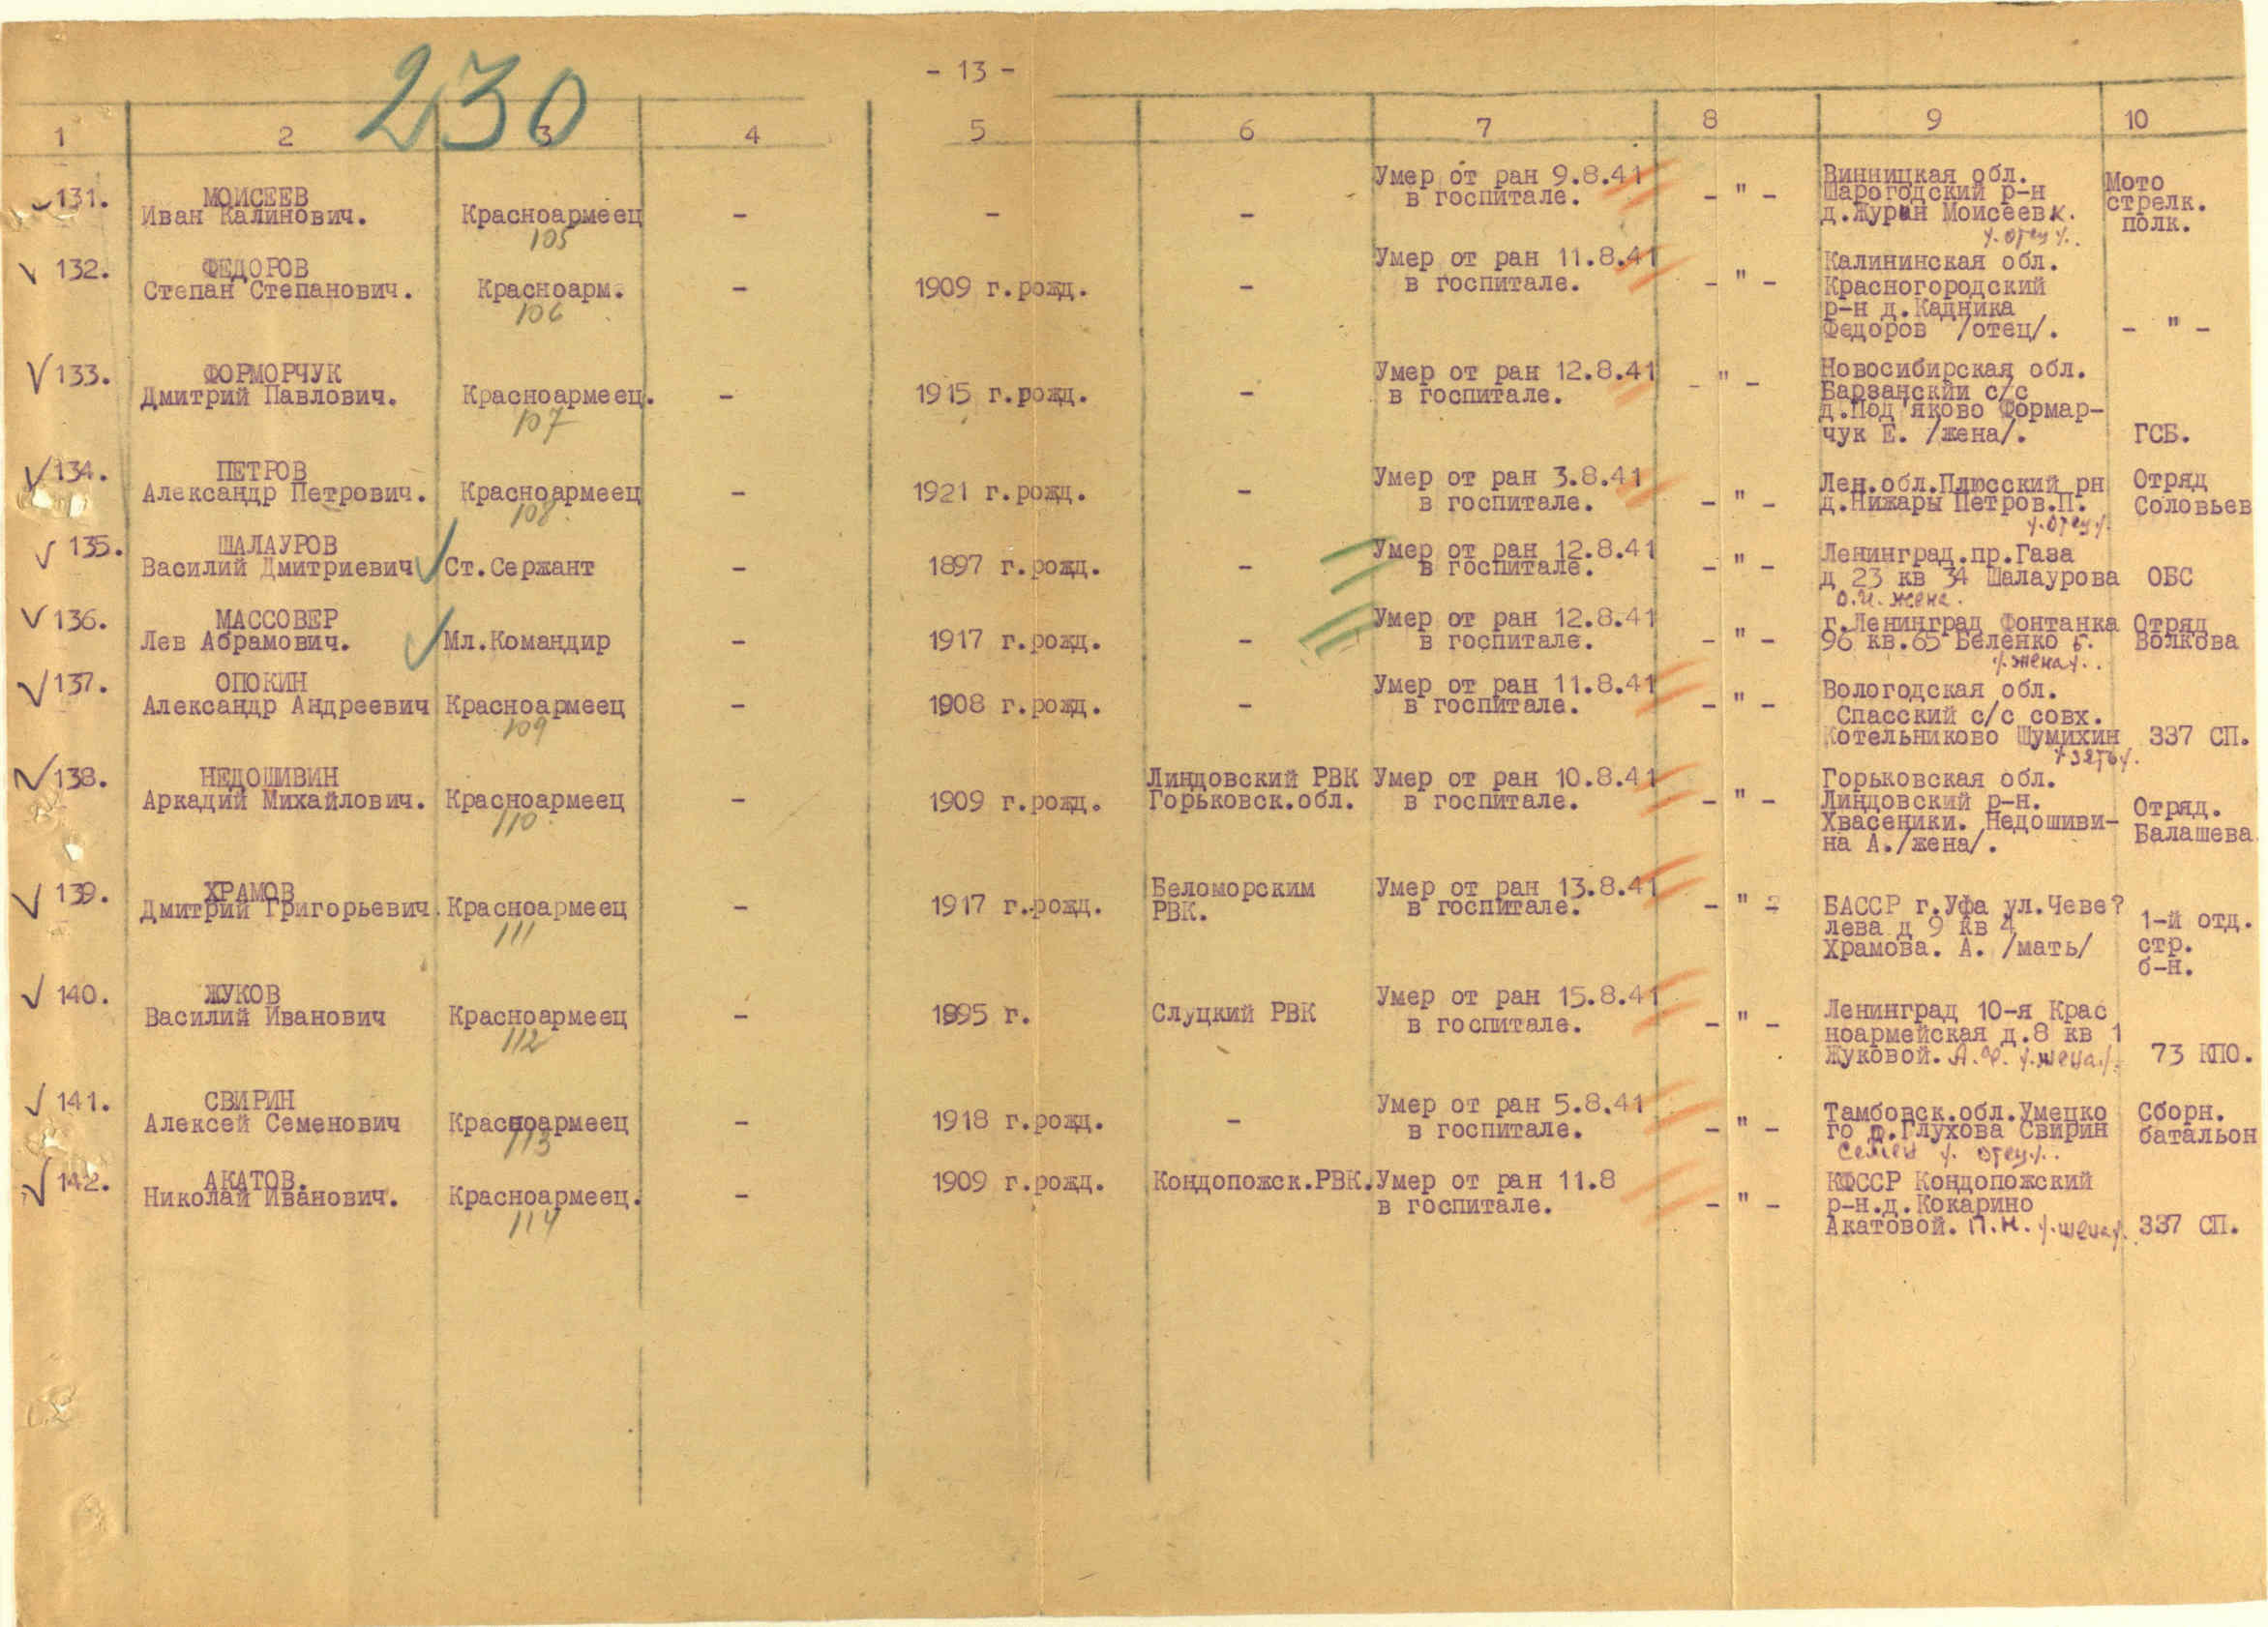 230
- 13 -
1 2 3 4 5 6 7 8 9 10
131. МОИСЕЕВ Умер от ран 9.8.41 Винницкая обл. Мото
Иван Калинович. Красноармеец - - - в госпитале. - " - Шарогодский р-н стрелк.
105 д.Журин Моисеев К. полк.
/отец/.
132. ФЕДОРОВ Умер от ран 11.8.41 Калининская обл.
Степан Степанович. Красноарм. - 1909 г.рожд. - в госпитале. - " - Красногородский
106 р-н д.Кадника
Федоров /отец/. - " -
133. ФОРМОРЧУК Умер от ран 12.8.41 - " - Новосибирская обл.
Дмитрий Павлович. Красноармеец. - 1915 г.рожд. - в госпитале. Барзанский с/с
107 д.Под'яково Формар-
чук Е. /жена/. ГСБ.
134. ПЕТРОВ Умер от ран 3.8.41 Лен.обл.Плюсский рн Отряд
Александр Петрович. Красноармеец - 1921 г.рожд. - в госпитале. - " - д.Нижары Петров.П. Соловьев
108 /отец/.
135. ШАЛАУРОВ Умер от ран 12.8.41 Ленинград.пр.Газа
Василий Дмитриевич Ст.Сержант - 1897 г.рожд. - в госпитале. - " - д 23 кв 34 Шалаурова ОБС
О.И. жена.
136. МАССОВЕР Умер от ран 12.8.41 г.Ленинград Фонтанка Отряд
Лев Абрамович. Мл.Командир - 1917 г.рожд. - в госпитале. - " - 96 кв.65 Беленко Б. Волкова
/жена/.
137. ОПОКИН Умер от ран 11.8.41 Вологодская обл.
Александр Андреевич Красноармеец - 1908 г.рожд. - в госпитале. - " - Спасский с/с совх.
109 Котельниково Шумихин 337 СП.
/зять/.
138. НЕДОШИВИН Линдовский РВК Умер от ран 10.8.41 Горьковская обл.
Аркадий Михайлович. Красноармеец - 1909 г.рожд. Горьковск.обл. в госпитале. - " - Линдовский р-н. Отряд.
110 Хвасеники. Недошиви- Балашева
на А./жена/.
139. ХРАМОВ Беломорским Умер от ран 13.8.41
Дмитрий Григорьевич. Красноармеец - 1917 г.рожд. РВК. в госпитале. - " - БАССР г.Уфа ул.Чеве?
111 лева д 9 кв 4 1-й отд.
Храмова. А. /мать/ стр.
б-н.
140. ЖУКОВ Умер от ран 15.8.41
Василий Иванович Красноармеец - 1895 г. Слуцкий РВК в госпитале. - " - Ленинград 10-я Крас
112 ноармейская д.8 кв 1
Жуковой. А.Ф. /жена/. 73 КПО.
141. СВИРИН Умер от ран 5.8.41 Тамбовск.обл.Умецко Сборн.
Алексей Семенович Красноармеец - 1918 г.рожд. - в госпитале. - " - го р.Глухова Свирин батальон
113 Семен /отец/.
142. АКАТОВ. 1909 г.рожд. Кондопожск.РВК. Умер от ран 11.8 КФССР Кондопожский
Николай Иванович. Красноармеец. - в госпитале. - " - р-н.д.Кокарино
114 Акатовой. П.Н. /жена/. 337 СП.